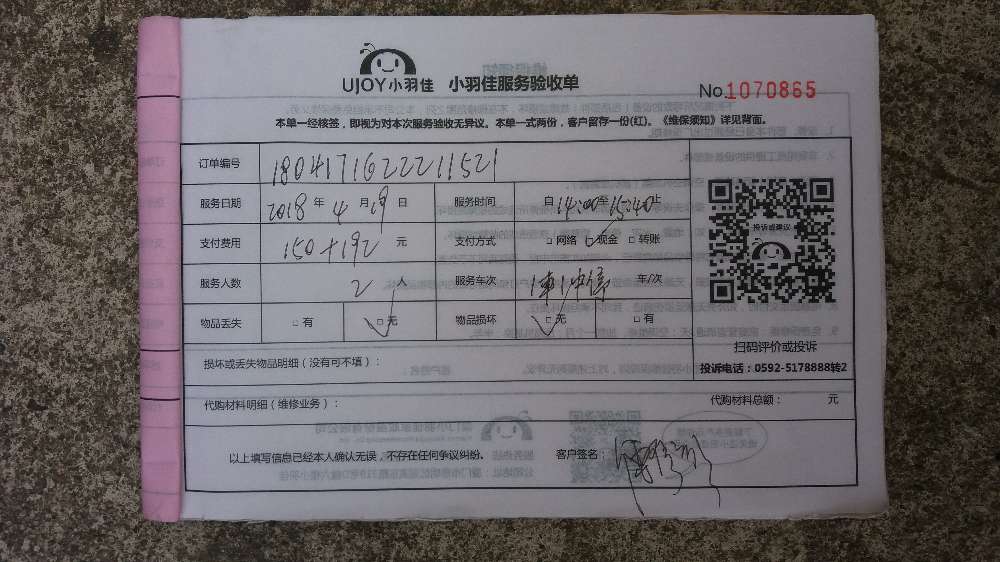 UJOY小羽佳 小羽佳服务验收单
No.1070865
本单一经核签，即视为对本次服务验收无异议。本单一式两份，客户留存一份(红)。《维保须知》详见背面。
订单编号 1804171622211521
服务日期 2018 年 4 月 19 日 服务时间 自 14:00 至 15:40 止
支付费用 150+192 元 支付方式 □ 网络 □ 现金 □ 转账
服务人数 2 人 服务车次 1车1次 车/次
物品丢失 □ 有 □ 无 物品损坏 □ 无 □ 有
投诉或建议
扫码评价或投诉
投诉电话：0592-5178888转2
损坏或丢失物品明细（没有可不填）：
代购材料明细（维修业务）： 代购材料总额： 元
以上填写信息已经本人确认无误，不存在任何争议纠纷。 客户签名：